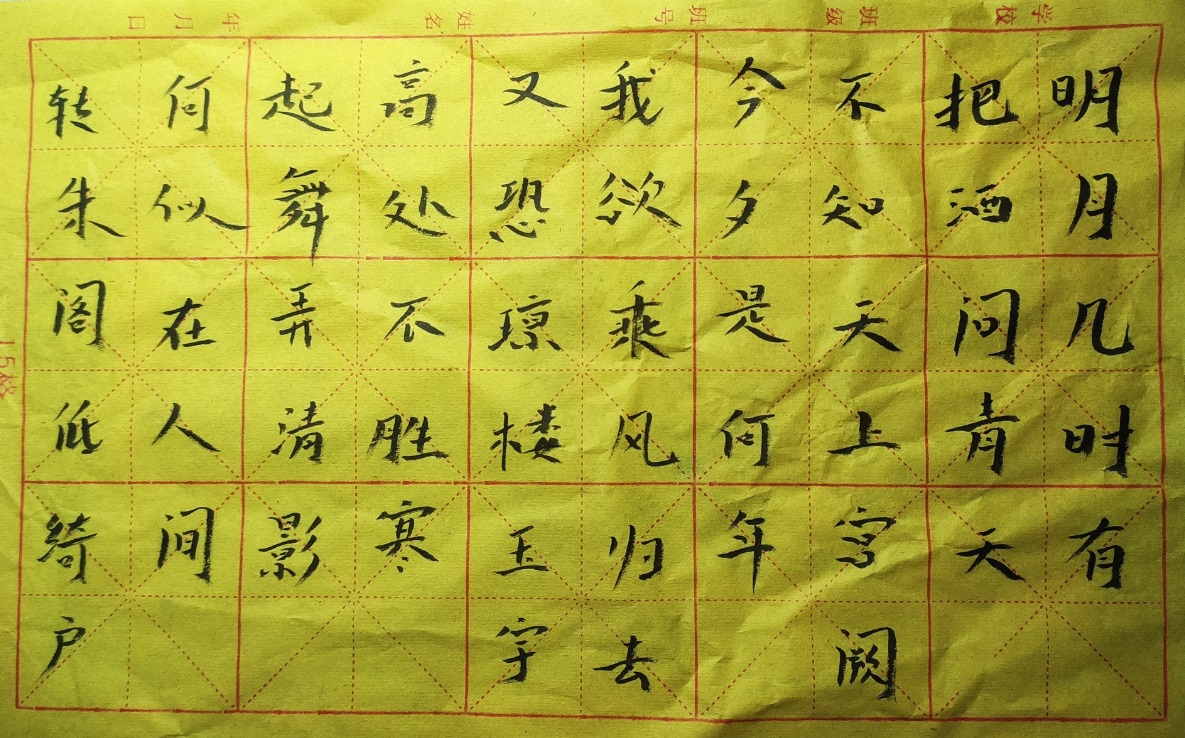 学校 班级 班号 姓名 年 月 日
明月几时有
把酒问青天
不知天上宫阙
今夕是何年
我欲乘风归去
又恐琼楼玉宇
高处不胜寒
起舞弄清影
何似在人间
转朱阁低绮户
15格